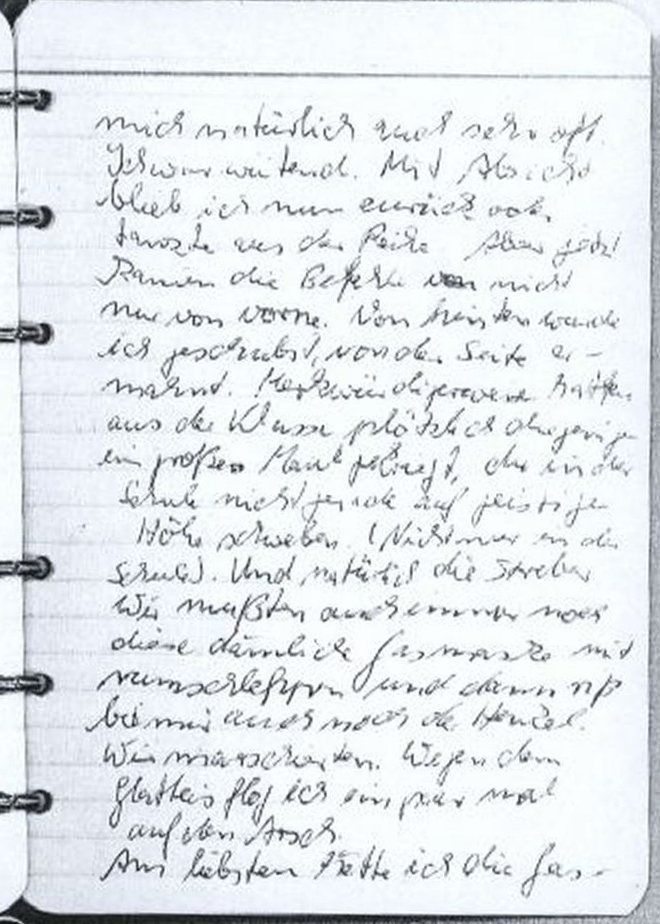 mich natürlich auch sehr oft.
Ich war wütend. Mit Absicht
blieb ich nun zurück oder
tanzte aus der Reihe Aber jetzt
kamen die Befehle von nicht
nur von vorne. Von hinten wurde
ich geschubst, von der Seite er-
mahnt. Merkwürdigerweise hatten
aus der Klasse plötzlich diejenigen
ein großes Maul gekriegt, die in der
Schule nicht gerade auf geistiger
Höhe schweben. (Nicht nur in der
Schule). Und natürlich die Streber
Wir mußten auch immer noch
diese dämliche Gasmaske mit
rumschleppen und dann riß
bei mir auch noch der Henkel.
Wir marschierten. Wegen dem
Glatteis flog ich ein paar mal
auf den Arsch.
Am liebsten hätte ich die Gas-